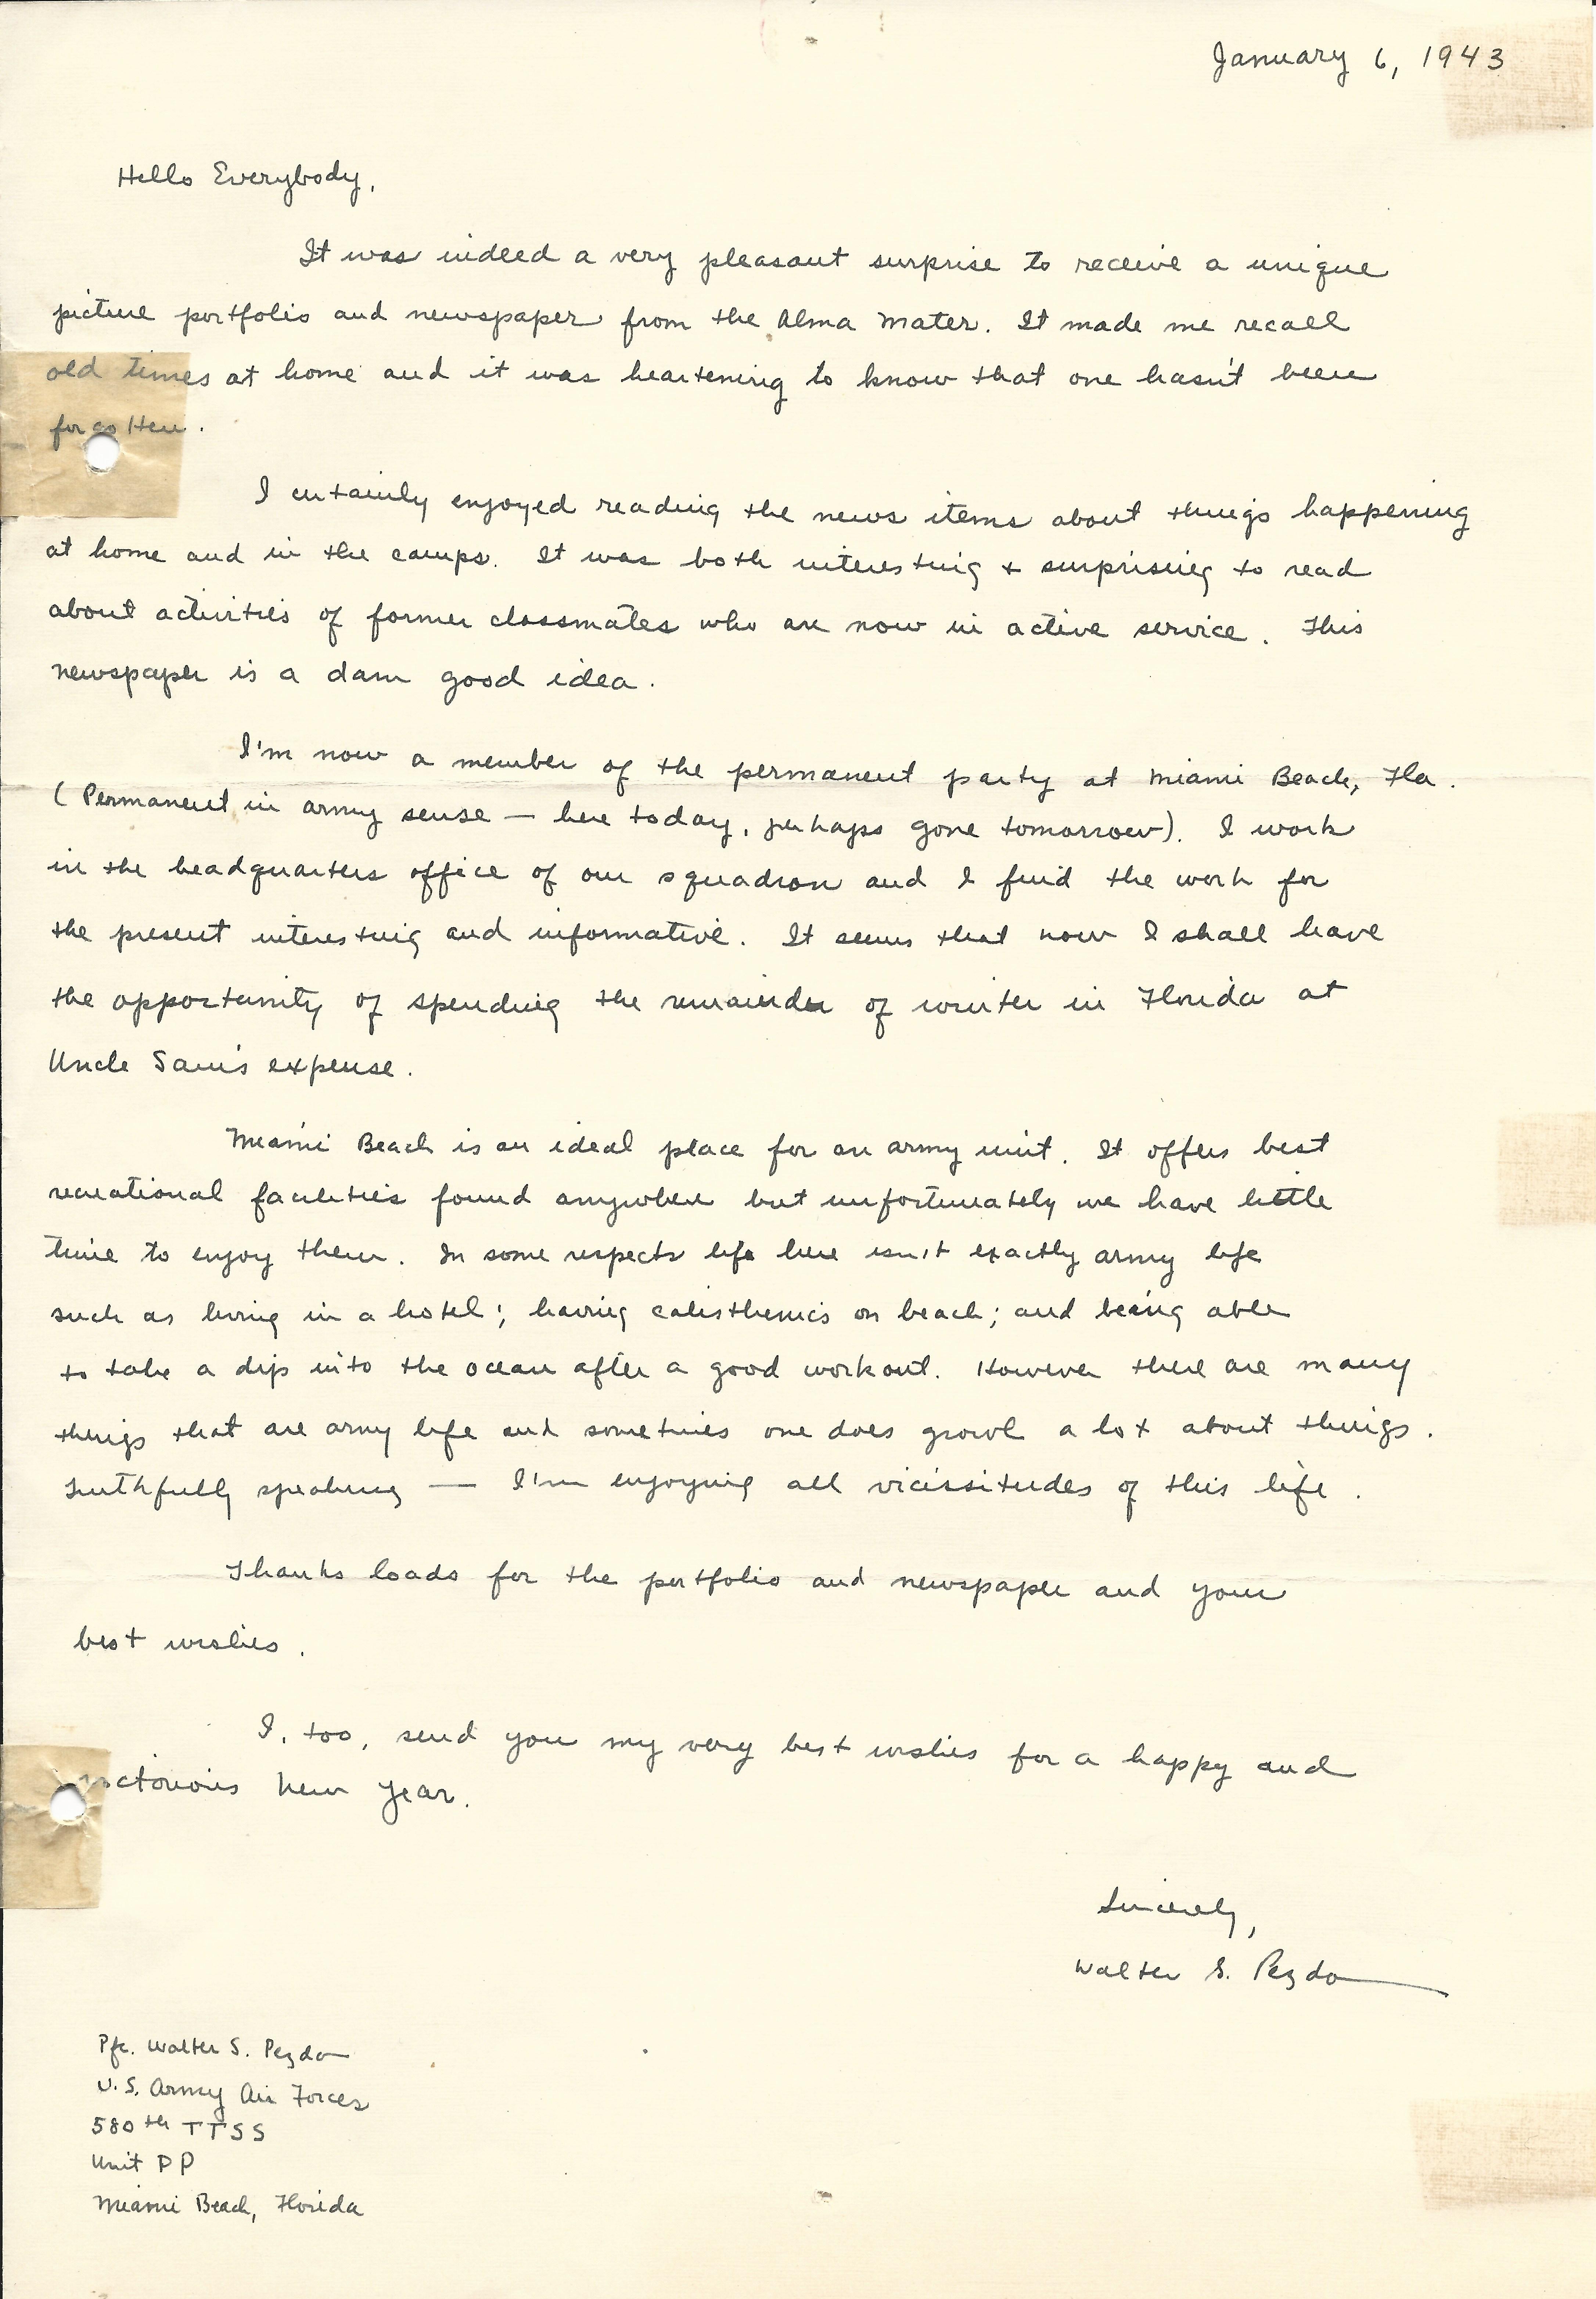 January 6, 1943
Hello Everybody,
It was indeed a very pleasant surprise to receive a unique
picture portfolio and newspaper from the Alma Mater. It made me recall
old times at home and it was heartening to know that one hasn't been
forgotten.
I certainly enjoyed reading the news items about things happening
at home and in the camps. It was both interesting + surprising to read
about activities of former classmates who are now in active service. This
newspaper is a dam good idea.
I'm now a member of the permanent party at Miami Beach, Fla.
(Permanent in army sense — here today, perhaps gone tomorrow). I work
in the headquarters office of our squadron and I find the work for
the present interesting and informative. It seems that now I shall have
the opportunity of spending the remainder of winter in Florida at
Uncle Sam's expense.
Miami Beach is an ideal place for an army unit. It offers best
recreational facilities found anywhere but unfortunately we have little
time to enjoy them. In some respects life here isn't exactly army life
such as living in a hotel; having calisthenics on beach; and being able
to take a dip into the ocean after a good workout. However there are many
things that are army life and sometimes one does growl a lot about things.
Truthfully speaking — I'm enjoying all vicissitudes of this life.
Thanks loads for the portfolio and newspaper and your
best wishes.
I, too, send you my very best wishes for a happy and
victorious New Year.
Sincerely,
Walter S. Pezda
Pfc. Walter S. Pezda
U.S. Army Air Forces
580th TTSS
Unit PP
Miami Beach, Florida